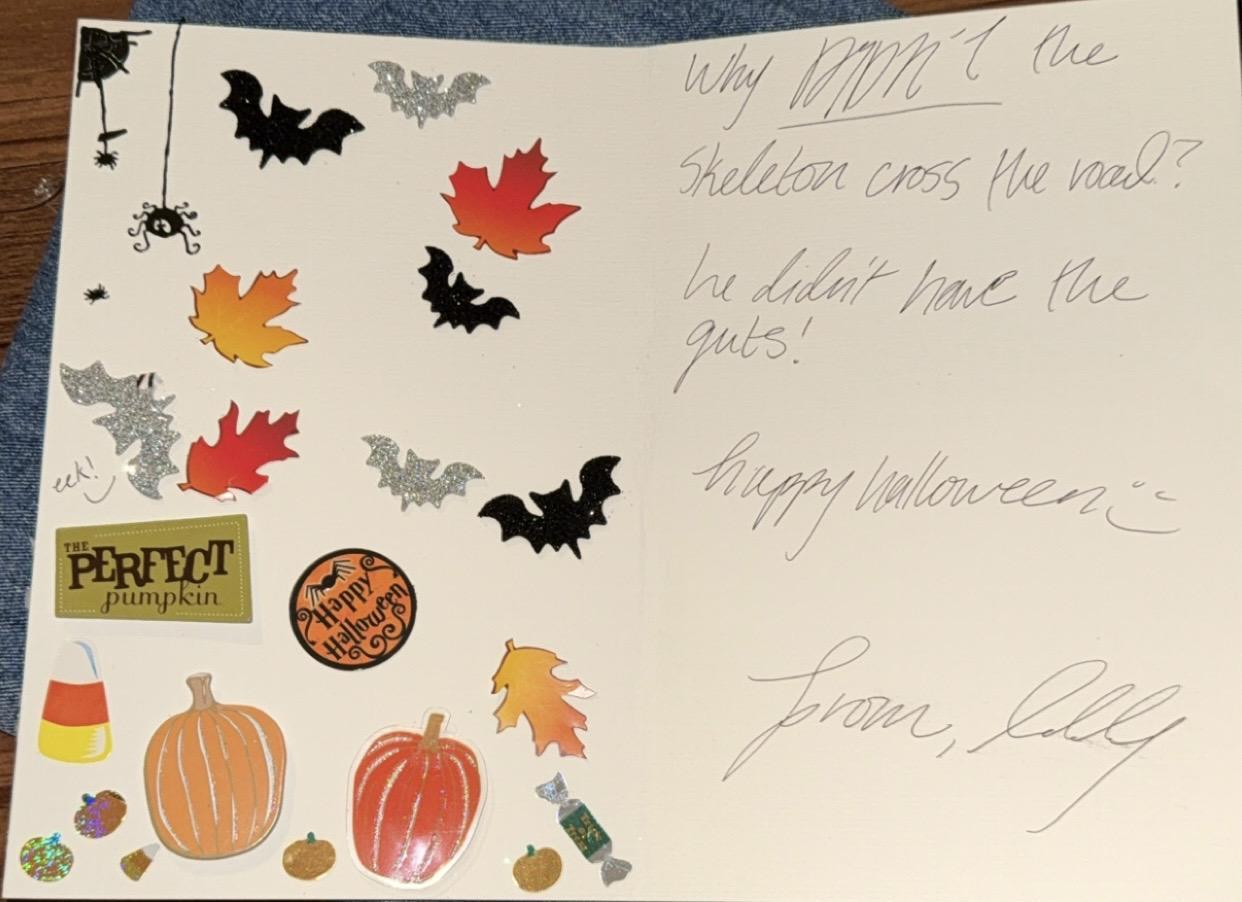 eek!
THE
PERFECT
pumpkin
Happy
Halloween
Why DIDN't the
Skeleton cross the road?
he didn't have the
guts!
happy halloween
from,